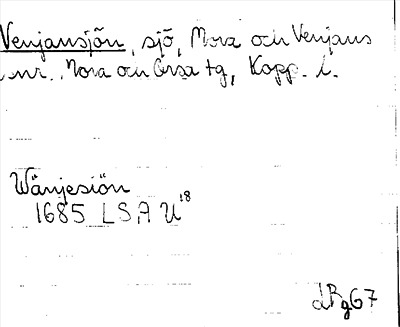 Venjansjön, sjö, Mora och Venjans
snr. Mora och Orsa tg, Kopp. l.
Wänjesiön
1685 LSA U18
LRg67